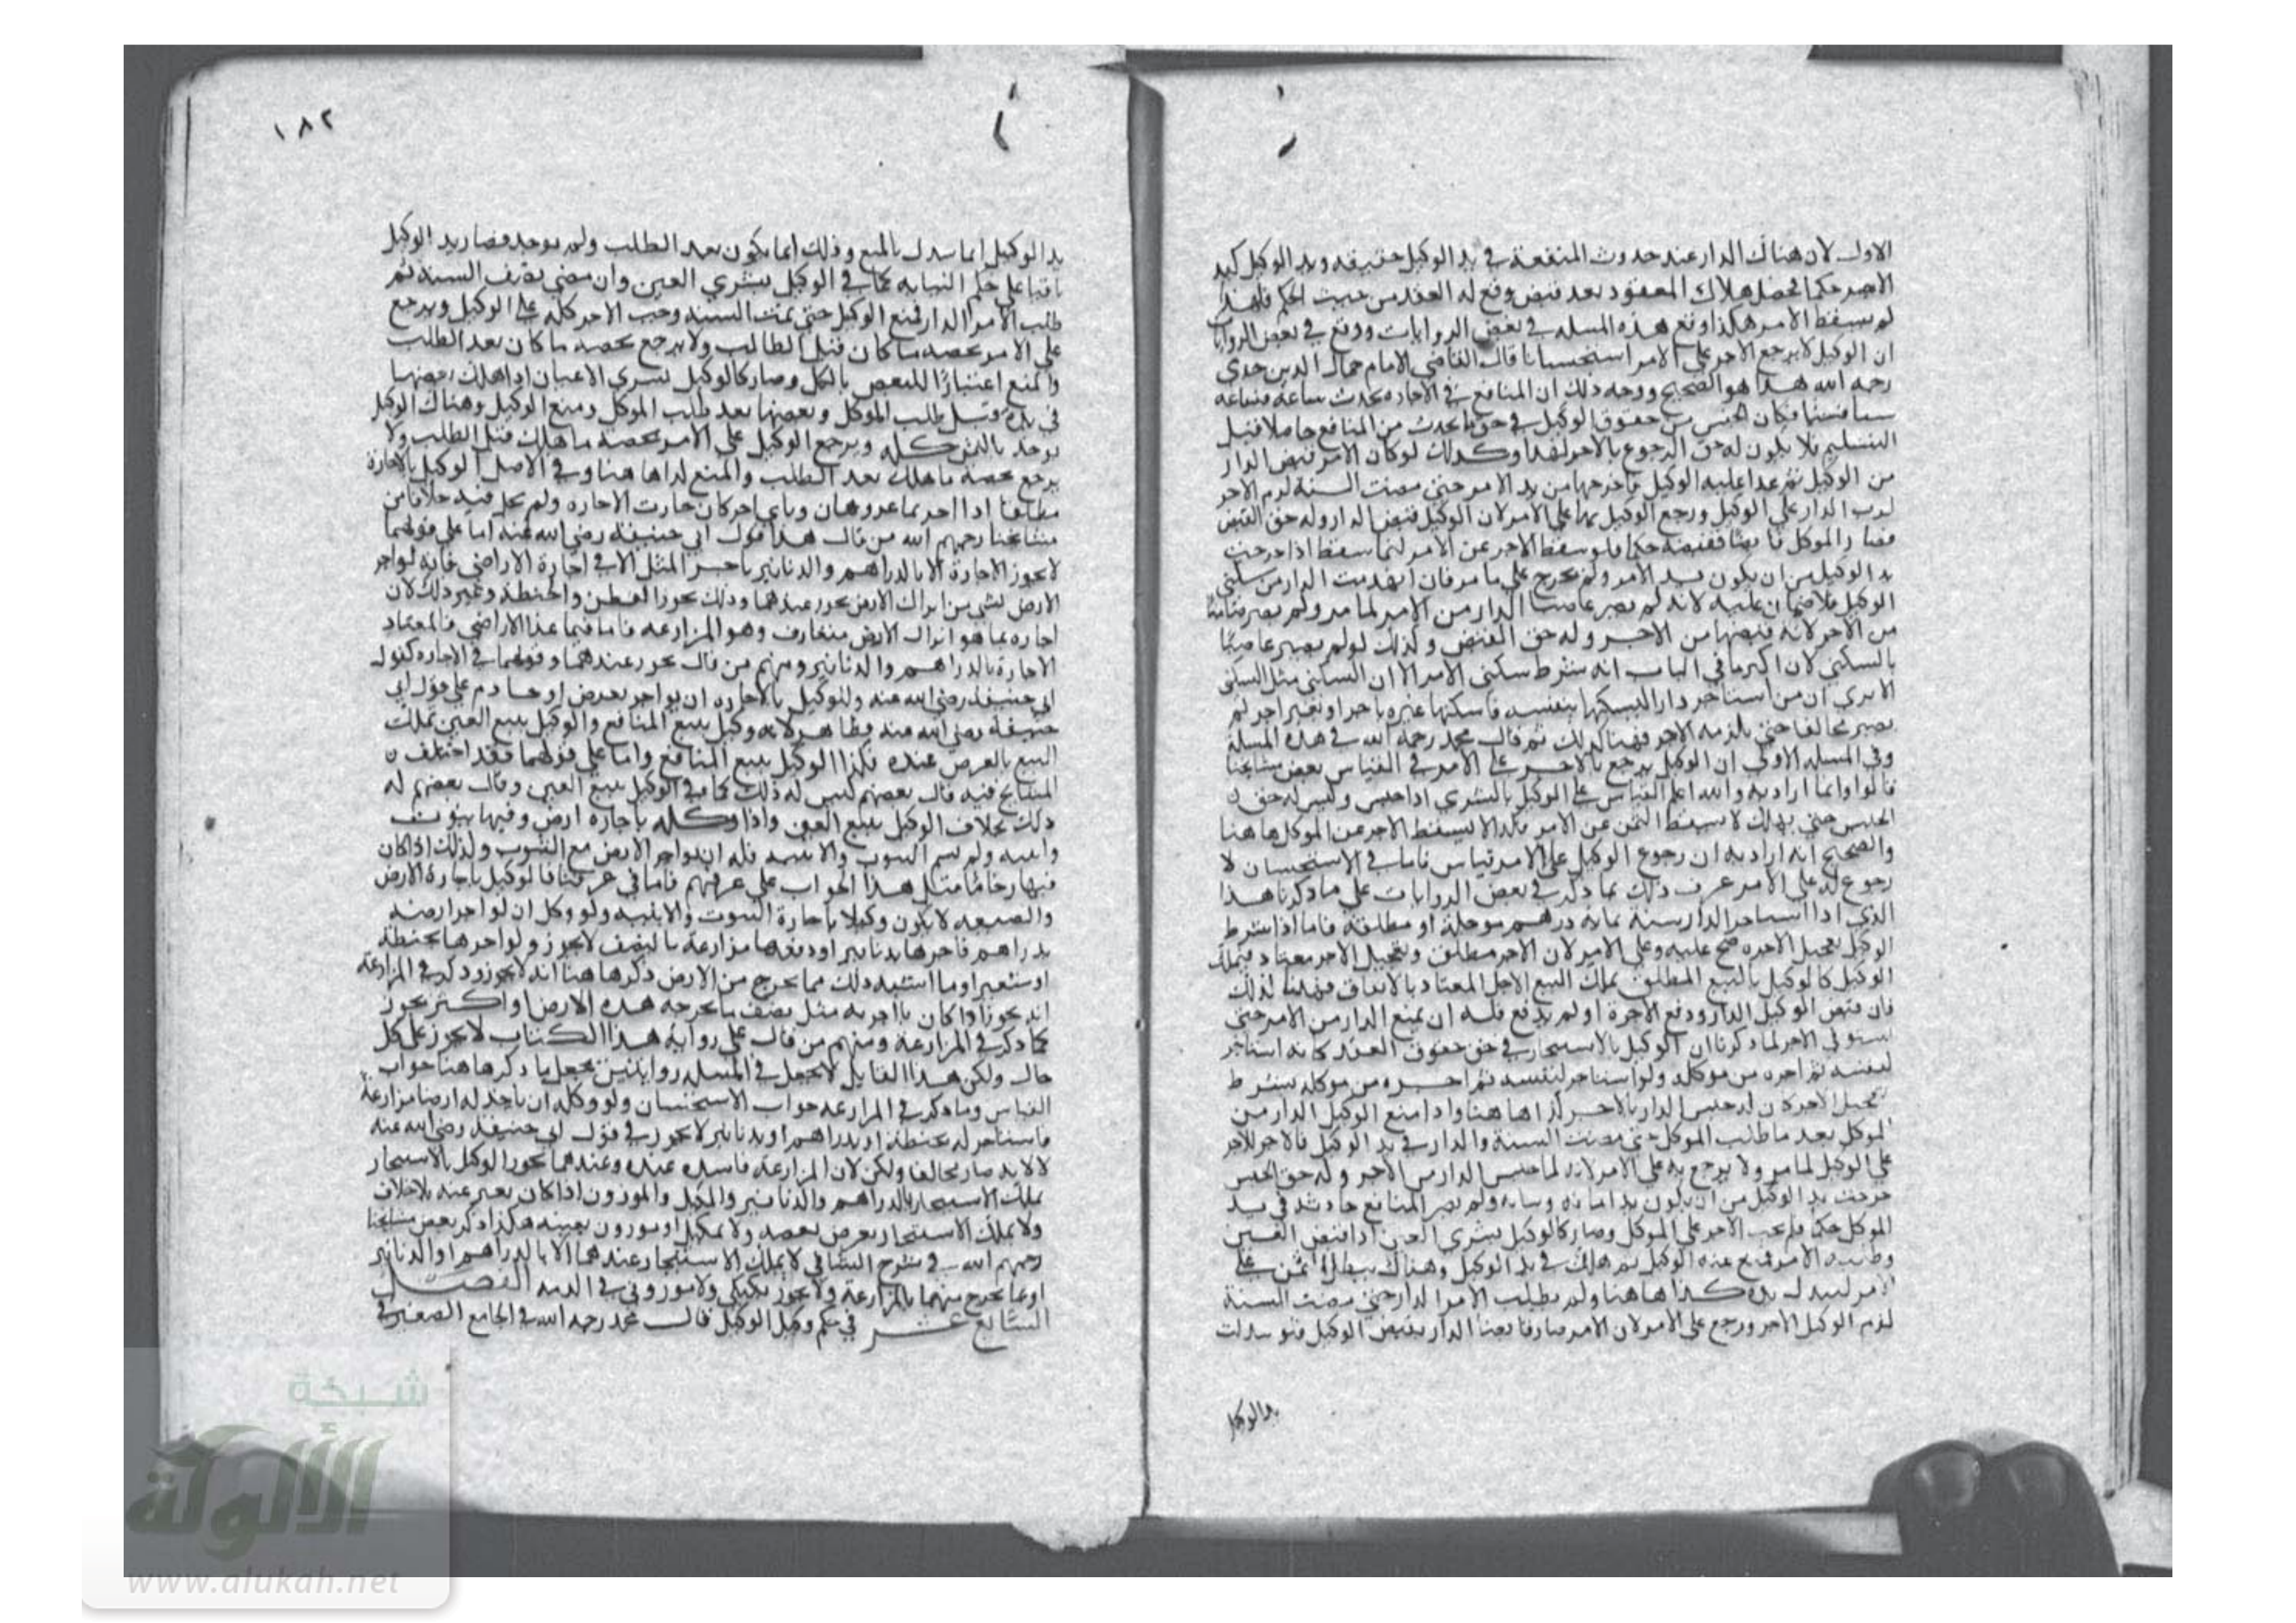 الاول لان هناك الدار عند حدوث المنفعة في يد الوكيل حقيقه ويد الوكيل كيد
الامر حكما فحصل هلاك المعقود بعد قبض وقع له العقد من حيث الحكم فلهذا
لم يسقط الاجر هكذا وقع هذه المسله في بعض الروايات ووقع في بعض الروايات
ان الوكيل لا يرجع بالاجر على الامر استحسانا قال القاضي الامام جمال الدين جدي
رحمه الله هذا هو الصحيح ووجه ذلك ان المنافع في الاجاره تحدث ساعة فساعه
شيا فشيا فكان الحبس من حقوق الوكيل في حق ما يحدث من المنافع حاصلا قبل
التسليم فلا يكون له حق الرجوع بالاجر لهذا وكذلك لو كان الامر قبض الدار
من الوكيل ثم عدا عليه الوكيل فاخرجها من يد الامر حتى مضت السنة لزم الاجر
لرب الدار علي الوكيل ورجع الوكيل بها علي الامر لان الوكيل قبض الدار وله حق القبض
فصار الموكل قابضا بقبضه حكما فلو سقط الاجر عن الامر انما سقط اذا خرجت
يد الوكيل من ان يكون يد الامر ولم يخرج علي ما مر فان انهدمت الدار من سكنى
الوكيل فلا ضمان عليه لانه لم يصر غاصبا الدار من الامر لما مر ولم يصر ضامنا
من الاجر لانه قبضها من الاجر وله حق القبض وكذلك لو لم يصير غاصبا
بالسكنى لان اكبر ما في الباب انه شرط سكنى الامر الا ان السكنى مثل السكنى
الا يرى ان من استاجر دارا ليسكنها بنفسه فاسكنها غيره باجر او بغير اجر لم
يصير مخالفا حتى يلزمه الاجر فهنا كذلك ثم قال محمد رحمه الله في هذه المسلة
وفي المسله الاولى ان الوكيل يرجع بالاجر على الامر في القياس بعض مشايخنا
قالوا وانما اراد به والله اعلم القياس على الوكيل بالشرى اذا حبس وليس له حق
الحبس حتى يهلك لا يسقط الثمن عن الامر فكذا لا يسقط الاجر عن الموكل هاهنا
والصحيح انه اراد به ان رجوع الوكيل على الامر قياس فاما في الاستحسان لا
رجوع له على الامر عرف ذلك بما ذكر في بعض الروايات علي ما ذكرنا هذا
الذي اذا استاجر الدار سنة بمائة درهم موجلة او مطلقة فاما اذا شرط
الوكيل تعجيل الاجره صح عليه وعلى الامر لان الاجر مطلق وتعجيل الاجر معتاد فيملك
الوكيل كالوكيل بالبيع المطلق يملك البيع الاجل المعتاد بالاتفاق فهاهنا كذلك
فان قبض الوكيل الدار ودفع الاجرة او لم يدفع فله ان يمنع الدار من الامر حتى
يستوفي الاجر لما ذكرنا ان الوكيل بالاستيجار في حق حقوق العقد كانه استاجر
لنفسه ثم اجره من موكله ولو استاجر لنفسه ثم اجره من موكله بشرط
تعجيل الاجر كان له حبس الدار بالاجر كذا هاهنا واذا منع الوكيل الدار من
الموكل بعد ما طلب الموكل حتى مضت السنة والدار في يد الوكيل فالاجر للاجر
علي الوكيل لما مر ولا يرجع به علي الامر لانه لما حبس الدار من الاجر وله حق الحبس
خرجت يد الوكيل من ان يكون يد امانة ونيابة ولم يصر المنافع حادثه في يد
الموكل حكما فلم يجب الاجر على الموكل وصار كالوكيل بشرى العين اذا قبض العين
وطلبه الامر فمنع عنه الوكيل ثم هلك في يد الوكيل وهناك يبطل الثمن على
الامر لتبدل يده كذا هاهنا ولو لم يطلب الامر الدار حتى مضت السنة
لزم الوكيل الاجر ورجع على الامر لان الامر صار قابضا الدار بقبض الوكيل فلو تبدلت
يد الوكيل
١٨٢
يد الوكيل انما تبدلت بالمنع وذلك انما يكون بعد الطلب ولم يوجد فصار يد الوكيل
باقيا على حكم النيابه كما في الوكيل بشرى العين وان مضى نصف السنة ثم
طلب الامر الدار فمنع الوكيل حتى تمت السنه وجب الاجر كله على الوكيل ويرجع
على الامر بحصه ما كان قبل الطلب ولا يرجع بحصه ما كان بعد الطلب
والمنع اعتبارا للبعض بالكل وصار كالوكيل بشرى الاعيان اذا هلك بعضها
في يده قبل طلب الموكل وبعضها بعد طلب الموكل ومنع الوكيل وهناك الوكيل
يوخذ بالثمن كله ويرجع الوكيل على الامر بحصة ما هلك قبل الطلب ولا
يرجع بحصة ما هلك بعد الطلب والمنع كذا هاهنا وفي الاصل الوكيل بالاجارة
مطلقا اذا اجر بما عز وهان وباي اجر كان جازت الاجاره ولم يحك فيه خلافا من
مشايخنا رحمهم الله من قال هذا قول ابي حنيفة رضي الله عنه اما على قولهما
لا يجوز الاجارة الا بالدراهم والدنانير باجر المثل الا في اجارة الاراضي فانه لو اجر
الارض لشي من انزال الارض يجوز عندهما وذلك نحو القطن والحنطة وغير ذلك لان
اجاره بما هو انزال الارض متعارف وهو المزارعه فاما فيما عدا الاراضي فالمعتاد
الاجارة بالدراهم والدنانير ومنهم من قال يجوز عندهما وقولهما في الاجاره كقول
ابي حنيفة رضي الله عنه وللوكيل بالاجاره ان يواجر بعرض او خادم على قول ابي
حنيفة رضي الله عنه وظاهر لانه وكيل ببيع المنافع والوكيل ببيع العين يملك
البيع بالعرض عنده فكذا الوكيل ببيع المنافع واما على قولهما فقد اختلف
المشايخ فيه قال بعضهم ليس له ذلك كما في الوكيل ببيع العين وقال بعضهم له
ذلك بخلاف الوكيل ببيع العين واذا وكله باجاره ارض وفيها بيوت
وابنيه ولم يسم البيوت والابنيه فله ان يواجر الارض مع البيوت وكذلك اذا كان
فيها رحا ما مثل هذا الجواب علي عرفهم فاما في عرفنا فالوكيل باجارة الارض
والضيعه لا يكون وكيلا باجارة البيوت والابنيه ولو وكل ان يواجر ارضه
بدراهم فاجرها بدنانير او دفعها مزارعة بالنصف لا يجوز ولو اجرها بحنطة
او شعير او ما اشبه ذلك مما يخرج من الارض ذكر هاهنا انه لا يجوز وذكر في المزارعة
انه يجوز اذا كان ما اجر به مثل نصف ما يخرجه هذه الارض او اكثر يجوز
كما ذكر في المزارعة ومنهم من قال على رواية هذا الكتاب لا يجوز على كل
حال ولكن هذا القايل لا يجعل في المسله روايتين يجعل ما ذكر هاهنا جواب
القياس وما ذكر في المزارعه جواب الاستحسان ولو وكله ان ياخذ له ارضا مزارعة
فاستاجر له بحنطة او بدراهم او بدنانير لا يجوز في قول ابي حنيفة رضي الله عنه
لا لانه صار مخالفا ولكن لان المزارعة فاسده عنده وعندهما يجوز الوكيل بالاستيجار
يملك الاستيجار بالدراهم والدنانير والمكيل والموزون اذا كان بغير عينه بلا خلاف
ولا يملك الاستيجار بعرض بعينه ولا بمكيل او موزون بعينه هكذا ذكر بعض مشايخنا
رحمهم الله وفي شرح الشافي لا يملك الاستيجار عندهما الا بالدراهم او الدنانير
او بما يخرج منهما بالمزارعة ولا يجوز بكيلي ولا موزوني في الذمه الفصل
السابع عشر في حكم وكيل الوكيل قال محمد رحمه الله في الجامع الصغير في
شبكة
الألوكة
www.alukah.net